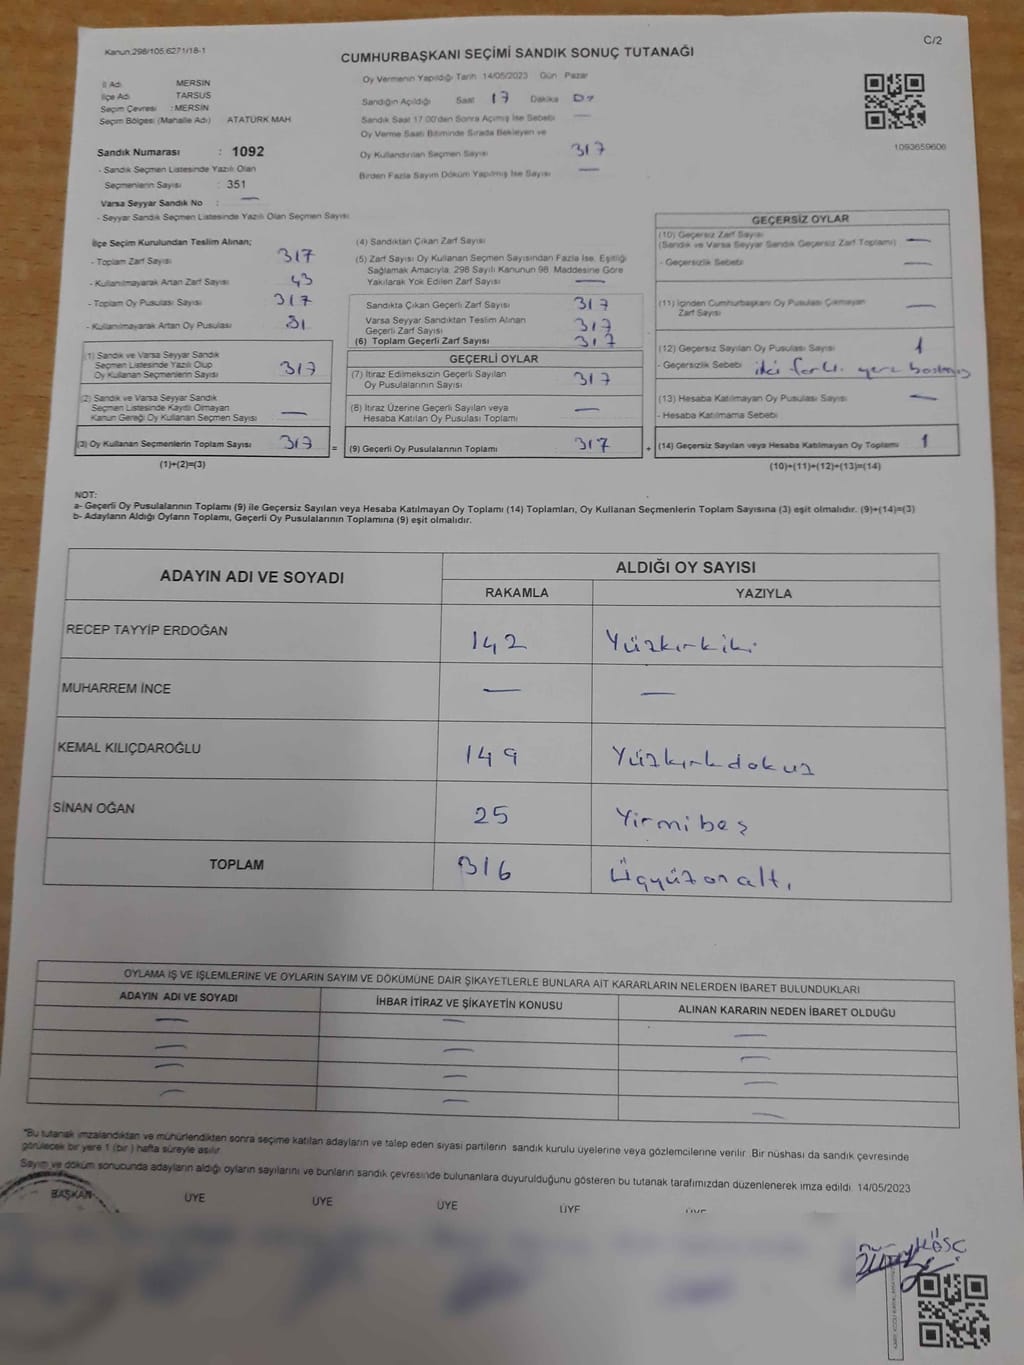 Kanun:298/105;6271/18-1
C/2
CUMHURBAŞKANI SEÇİMİ SANDIK SONUÇ TUTANAĞI
İl Adı MERSİN
İlçe Adı TARSUS
Seçim Çevresi : MERSİN
Seçim Bölgesi (Mahalle Adı) ATATÜRK MAH
Oy Vermenin Yapıldığı Tarih 14/05/2023 Gün Pazar
Sandığın Açıldığı Saat 17 Dakika
Sandık Saat 17:00'den Sonra Açılmış İse Sebebi —
Oy Verme Saati Bitiminde Sırada Bekleyen ve
Oy Kullandırılan Seçmen Sayısı 317
Birden Fazla Sayım Döküm Yapılmış İse Sayısı —
1093659606
Sandık Numarası : 1092
- Sandık Seçmen Listesinde Yazılı Olan
Seçmenlerin Sayısı : 351
Varsa Seyyar Sandık No : —
- Seyyar Sandık Seçmen Listesinde Yazılı Olan Seçmen Sayısı
İlçe Seçim Kurulundan Teslim Alınan;
- Toplam Zarf Sayısı 317
- Kullanılmayarak Artan Zarf Sayısı 43
- Toplam Oy Pusulası Sayısı 317
- Kullanılmayarak Artan Oy Pusulası 31
(1) Sandık ve Varsa Seyyar Sandık
Seçmen Listesinde Yazılı Olup
Oy Kullanan Seçmenlerin Sayısı 317
(2) Sandık ve Varsa Seyyar Sandık
Seçmen Listesinde Kayıtlı Olmayan
Kanun Gereği Oy Kullanan Seçmen Sayısı —
(3) Oy Kullanan Seçmenlerin Toplam Sayısı 317
(1)+(2)=(3)
(4) Sandıktan Çıkan Zarf Sayısı
(5) Zarf Sayısı Oy Kullanan Seçmen Sayısından Fazla İse, Eşitliği
Sağlamak Amacıyla, 298 Sayılı Kanunun 98. Maddesine Göre
Yakılarak Yok Edilen Zarf Sayısı —
Sandıkta Çıkan Geçerli Zarf Sayısı 317
Varsa Seyyar Sandıktan Teslim Alınan
Geçerli Zarf Sayısı 317
(6) Toplam Geçerli Zarf Sayısı 317
GEÇERLİ OYLAR
(7) İtiraz Edilmeksizin Geçerli Sayılan
Oy Pusulalarının Sayısı 317
(8) İtiraz Üzerine Geçerli Sayılan veya
Hesaba Katılan Oy Pusulası Toplamı —
= (9) Geçerli Oy Pusulalarının Toplamı 317
GEÇERSİZ OYLAR
(10) Geçersiz Zarf Sayısı
(Sandık ve Varsa Seyyar Sandık Geçersiz Zarf Toplamı) —
- Geçersizlik Sebebi —
(11) İçinden Cumhurbaşkanı Oy Pusulası Çıkmayan
Zarf Sayısı —
(12) Geçersiz Sayılan Oy Pusulası Sayısı 1
- Geçersizlik Sebebi iki farklı yere basılmış
(13) Hesaba Katılmayan Oy Pusulası Sayısı —
- Hesaba Katılmama Sebebi
+ (14) Geçersiz Sayılan veya Hesaba Katılmayan Oy Toplamı 1
(10)+(11)+(12)+(13)=(14)
NOT:
a- Geçerli Oy Pusulalarının Toplamı (9) ile Geçersiz Sayılan veya Hesaba Katılmayan Oy Toplamı (14) Toplamları, Oy Kullanan Seçmenlerin Toplam Sayısına (3) eşit olmalıdır. (9)+(14)=(3)
b- Adayların Aldığı Oyların Toplamı, Geçerli Oy Pusulalarının Toplamına (9) eşit olmalıdır.
ADAYIN ADI VE SOYADI ALDIĞI OY SAYISI
RAKAMLA YAZIYLA
RECEP TAYYİP ERDOĞAN 142 Yüzkırkiki
MUHARREM İNCE — —
KEMAL KILIÇDAROĞLU 149 Yüzkırkdokuz
SİNAN OĞAN 25 Yirmibeş
TOPLAM 316 Üçyüzonaltı
OYLAMA İŞ VE İŞLEMLERİNE VE OYLARIN SAYIM VE DÖKÜMÜNE DAİR ŞİKAYETLERLE BUNLARA AİT KARARLARIN NELERDEN İBARET BULUNDUKLARI
ADAYIN ADI VE SOYADI İHBAR İTİRAZ VE ŞİKAYETİN KONUSU ALINAN KARARIN NEDEN İBARET OLDUĞU
— — —
— — —
— — —
— — —
*Bu tutanak imzalandıktan ve mühürlendikten sonra seçime katılan adayların ve talep eden siyasi partilerin sandık kurulu üyelerine veya gözlemcilerine verilir. Bir nüshası da sandık çevresinde
görülecek bir yere 1 (bir) hafta süreyle asılır.
Sayım ve döküm sonucunda adayların aldığı oyların sayılarını ve bunların sandık çevresinde bulunanlara duyurulduğunu gösteren bu tutanak tarafımızdan düzenlenerek imza edildi. 14/05/2023
BAŞKAN ÜYE ÜYE ÜYE ÜYE ÜYE